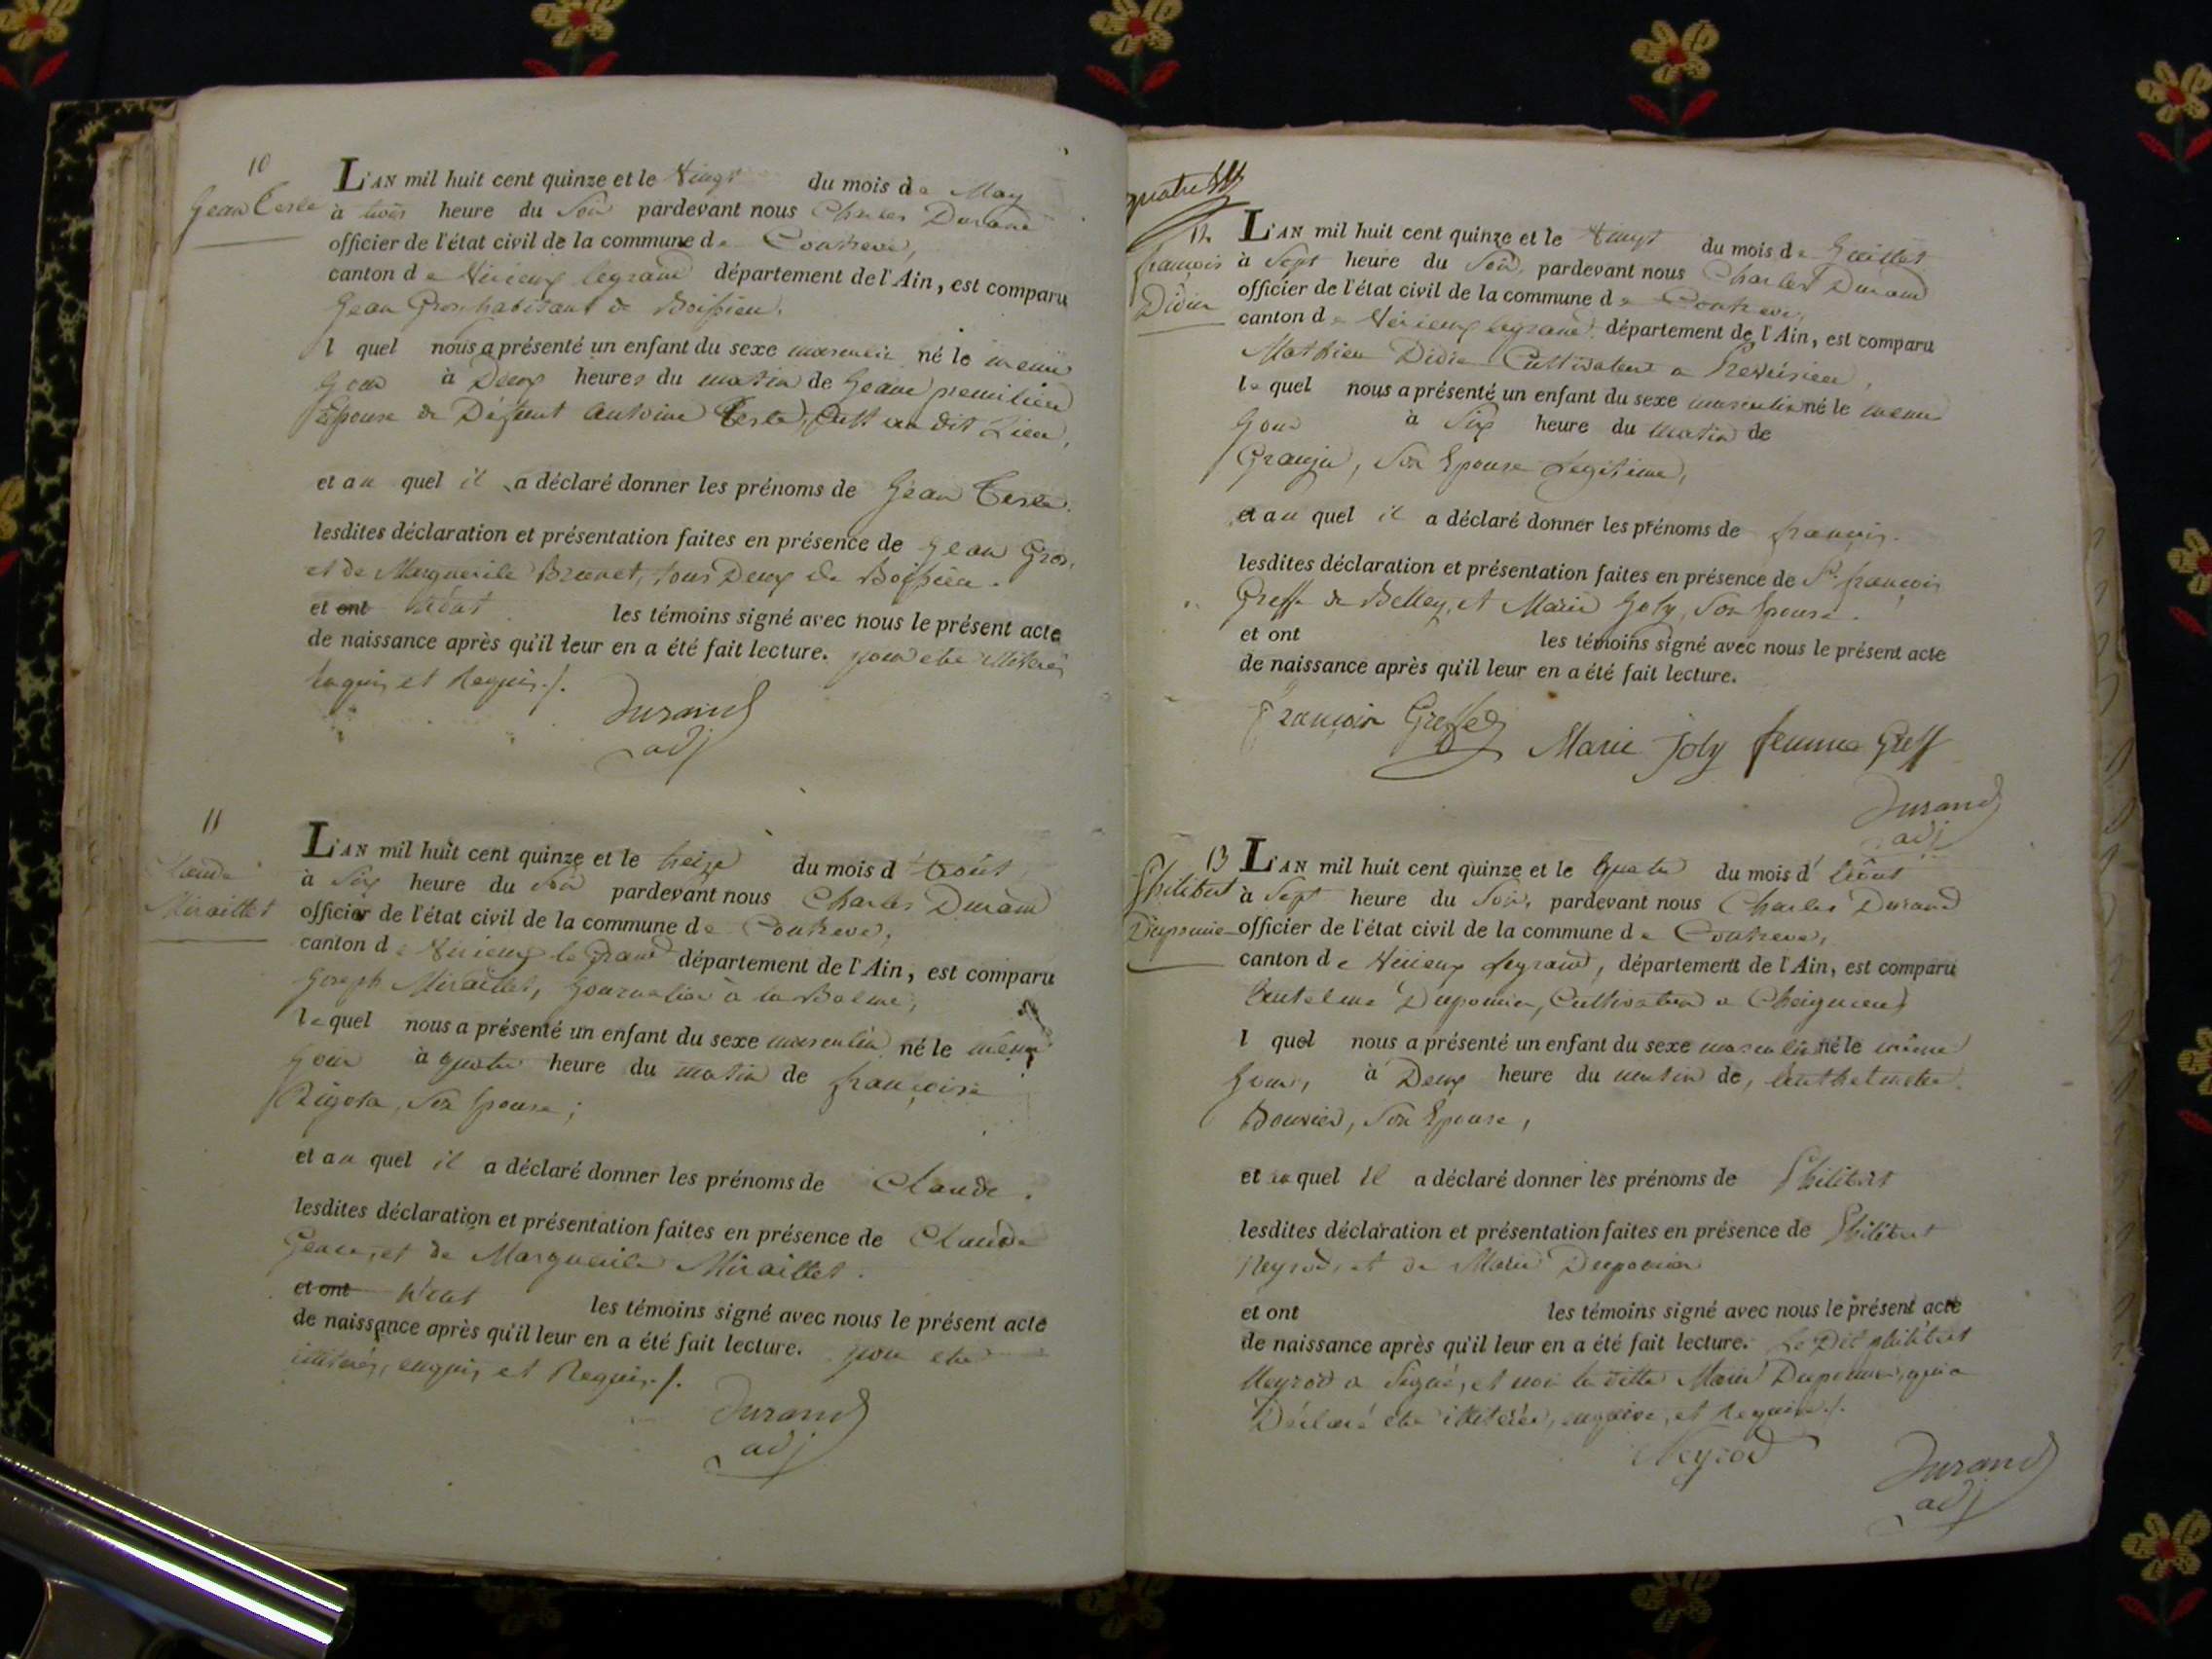 10
Jean Terle
L'AN mil huit cent quinze et le vingt du mois de May
à trois heure du Soir pardevant nous Charles Durand
officier de l'état civil de la commune de Contrevoz,
canton de Virieux legrand département de l'Ain, est comparu
Jean Gros habitant de Boissieu.
l quel nous a présenté un enfant du sexe masculin né le meme
Jour à Deux heures du matin de Jeanne premilieu
Epouse de Défunt Antoine Terle, Cult au dit Lieu,
et au quel il a déclaré donner les prénoms de Jean Terle.
lesdites déclaration et présentation faites en présence de Jean Gros,
et de Marguerite Brunet, tous Deux de Boissieu.
et ont N'ont les témoins signé avec nous le présent acte
de naissance après qu'il leur en a été fait lecture. pour etre illiterés
enquis et Requis./.
Durand
adj
11
Claude
Miraillet
L'AN mil huit cent quinze et le treize du mois d'Août
à Six heure du Soir pardevant nous Charles Durand
officier de l'état civil de la commune de Contrevoz,
canton de Virieux le Grand département de l'Ain, est comparu
Joseph Miraillet, Journalier à la Balme,
lequel nous a présenté un enfant du sexe masculin né le meme
Jour à quatre heure du matin de françoise
Rigota, Son Epouse;
et au quel il a déclaré donner les prénoms de Claude.
lesdites déclaration et présentation faites en présence de Claude
et de Marguerite Miraillet.
et ont N'ont les témoins signé avec nous le présent acte
de naissance après qu'il leur en a été fait lecture. pour etre
illiterés, enquis et Requis./.
Durand
adj
quatre
12
françois
Didier
L'AN mil huit cent quinze et le vingt du mois de Juillet
à Sept heure du Soir, pardevant nous Charles Durand
officier de l'état civil de la commune de Contrevoz,
canton de Virieux legrand département de l'Ain, est comparu
Mathieu Didier Cultivateur a Preveirieu,
le quel nous a présenté un enfant du sexe masculin né le meme
Jour à Six heure du matin de
Granju, Son Epouse Legitime,
et au quel il a déclaré donner les prénoms de françois.
lesdites déclaration et présentation faites en présence de Sr. françois
Greffe de Belley, et Marie Joly, Son Epouse.
et ont les témoins signé avec nous le présent acte
de naissance après qu'il leur en a été fait lecture.
François Greffe
Marie joly femme Greff
Durand
adj
13
Philibert
Duponnier
L'AN mil huit cent quinze et le quatre du mois d'Août
à Sept heure du Soir, pardevant nous Charles Durand
officier de l'état civil de la commune de Contrevoz,
canton de Virieux Legrand, département de l'Ain, est comparu
Antelme Duponnier, Cultivateur a Cheignieu
l quel nous a présenté un enfant du sexe masculin né le même
Jour, à Deux heure du matin de, Anthelmette
Bouvier, Son Epouse,
et au quel il a déclaré donner les prénoms de Philibert
lesdites déclaration et présentation faites en présence de Philibert
Neyrod, et de Marie Duponnier
et ont les témoins signé avec nous le présent acte
de naissance après qu'il leur en a été fait lecture. Le Dit philibert
Neyrod a Signé, et non la ditte Marie Duponnier, qui a
Déclaré etre illiterée, enquise, et Requise./.
Neyrod
Durand
adj